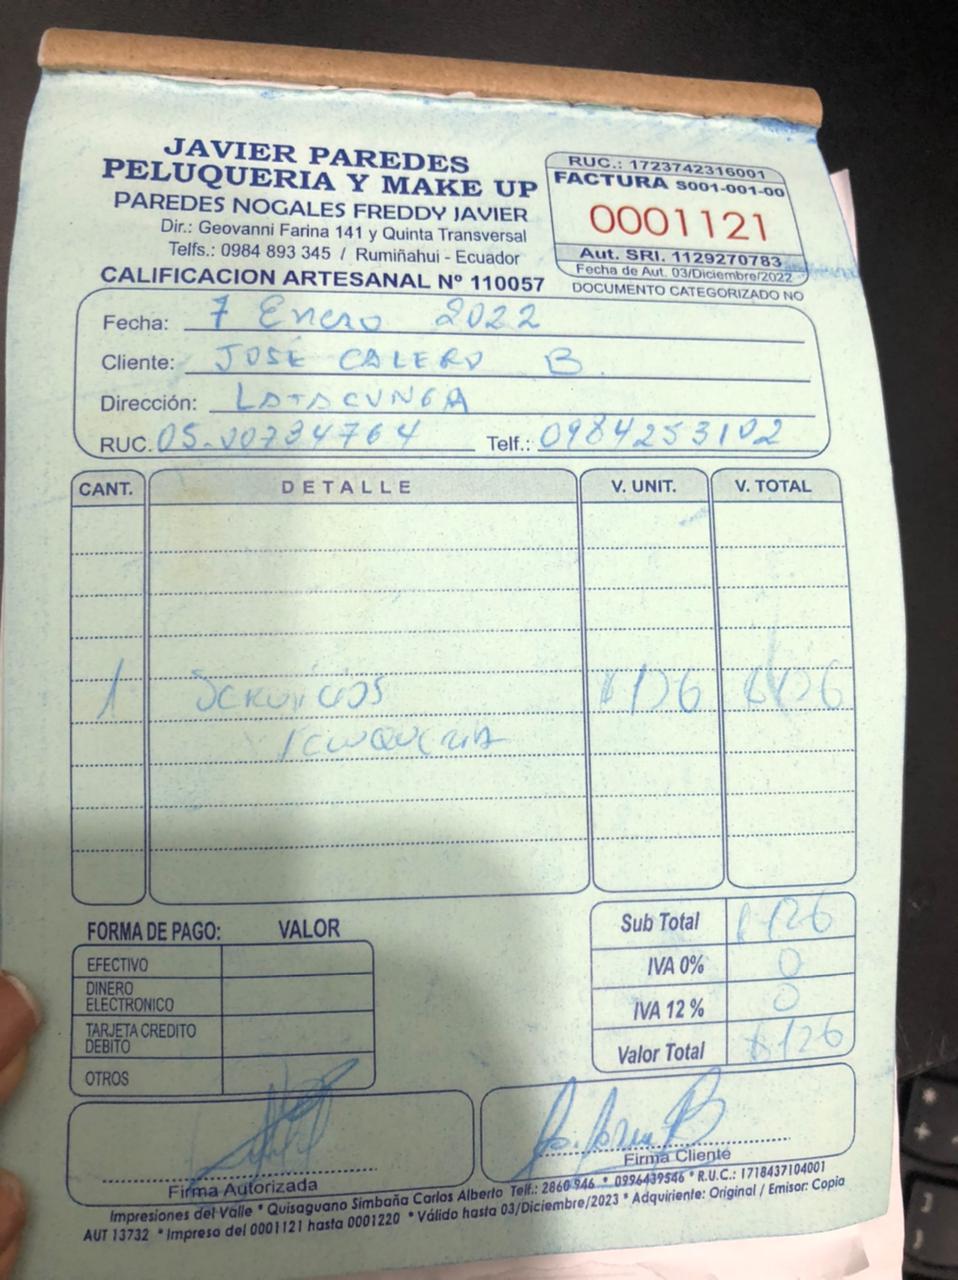 JAVIER PAREDES
PELUQUERIA Y MAKE UP
PAREDES NOGALES FREDDY JAVIER
Dir.: Geovanni Farina 141 y Quinta Transversal
Telfs.: 0984 893 345 / Rumiñahui - Ecuador
CALIFICACION ARTESANAL Nº 110057
RUC.: 1723742316001
FACTURA S001-001-00
0001121
Aut. SRI. 1129270783
Fecha de Aut. 03/Diciembre/2022
DOCUMENTO CATEGORIZADO NO
Fecha: 7 Enero 2022
Cliente: JOSE CALERO B.
Dirección: LATACUNGA
RUC. 05-00734764 Telf.: 0984253102
CANT. DETALLE V. UNIT. V. TOTAL
1 Servicios $126 $126
Peluqueria
FORMA DE PAGO: VALOR
EFECTIVO
DINERO ELECTRONICO
TARJETA CREDITO DEBITO
OTROS
Sub Total $126
IVA 0% 0
IVA 12 % 0
Valor Total $126
Firma Autorizada
Firma Cliente
Impresiones del Valle * Quisaguano Simbaña Carlos Alberto Telf.: 2860 946 * 0996439546 * R.U.C.: 1718437104001
AUT 13732 * Impreso del 0001121 hasta 0001220 * Válido hasta 03/Diciembre/2023 * Adquiriente: Original / Emisor: Copia